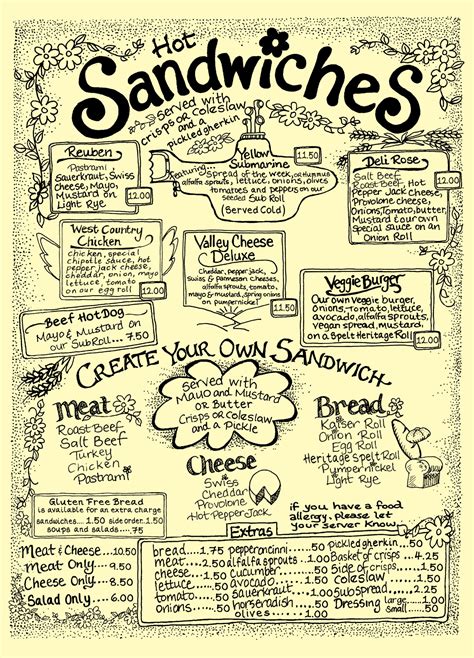 Hot
SANDWICHES
Served with
crisps or coleslaw
and a
pickled gherkin
Reuben
Pastrami,
Sauerkraut, Swiss
Cheese, Mayo,
Mustard on
Light Rye
12.00
Yellow
Submarine
11.50
Featuring...
spread of the week,
alfalfa sprouts, lettuce, onions, olives
tomatoes and peppers on our
seeded Sub Roll
(Served Cold)
Deli Rose
Salt Beef
Roast Beef, Hot
Pepper Jack Cheese,
Provolone cheese,
Onions, Tomato, butter,
Mustard & our own
special sauce on an
Onion Roll
12.00
West Country
Chicken
chicken, special
chipotle sauce, hot
pepper jack cheese,
cheddar, onion, mayo
lettuce, tomato
on our egg roll
12.00
Valley Cheese
Deluxe
Cheddar, pepper jack,
Swiss & pameson cheeses,
alfalfa sprouts, tomato,
mayo & mustard, spring onions
on pumpernickel
11.00
Veggie Burger
Our own Veggie burger,
onions, Tomato, lettuce,
avocado, alfalfa sprouts,
vegan spread, mustard,
on a Spelt Heritage Roll
12.00
Beef Hot Dog
Mayo & Mustard on
our Sub Roll ... 7.50
CREATE YOUR OWN SANDWICH
Served with
Mayo and Mustard
or Butter
Crisps or Coleslaw
and a Pickle
Meat
Roast Beef
Salt Beef
Turkey
Chicken
Pastrami
Cheese
Swiss
Cheddar
Provolone
Hot Pepper Jack
Bread
Kaiser Roll
Onion Roll
Egg Roll
Heritage Spelt Roll
Pumpernickel
Light Rye
Gluten Free Bread
is available for an extra charge
sandwiches... 1.50 side order. 1.50
soups and salads.... .75
if you have a food
allergy, please let
your server know
Meat & Cheese....10.50
Meat Only.......9.50
Cheese Only.....8.50
Salad Only ....6.00
Extras
bread....1.75
meat.....4.50
cheese....1.50
lettuce......50
tomato.....50
onions.....50
pepperoncini....50
alfalfa sprouts..1.00
cucumber.....50
avocado......1.50
sauerkraut..1.00
horseradish....50
olives.....1.00
pickled gherkin...50
Basket of crisps...4.25
Side of crisps....1.50
coleslaw.....1.50
sub spread......2.25
Dressing large...1.00
small......50